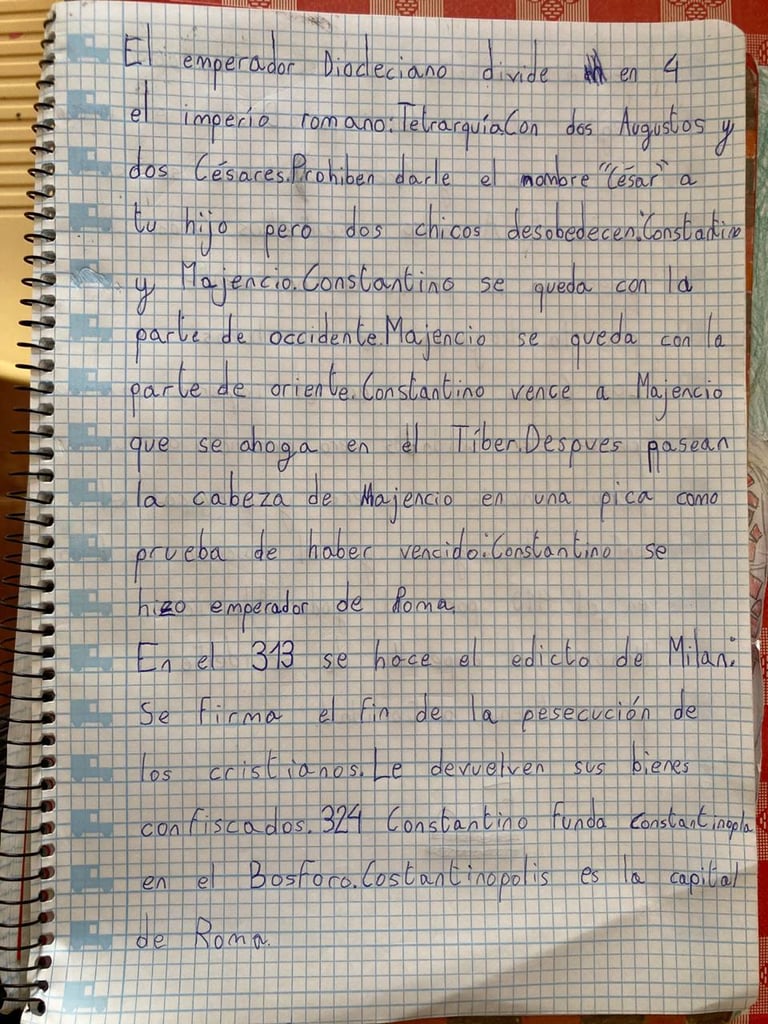 El emperador Diocleciano divide en 4
el imperio romano:Tetrarquía.Con dos Augustos y
dos Césares.Prohiben darle el nombre "César" a
tu hijo pero dos chicos desobedecen:Constantino
y Majencio.Constantino se queda con la
parte de occidente.Majencio se queda con la
parte de oriente.Constantino vence a Majencio
que se ahoga en el Tíber.Despues pasean
la cabeza de Majencio en una pica como
prueba de haber vencido:Constantino se
hizo emperador de Roma.
En el 313 se hace el edicto de Milan:
Se firma el fin de la pesecución de
los cristianos.Le devuelven sus bienes
confiscados.324 Constantino funda constantinopla
en el Bosforo.Costantinopolis es la capital
de Roma.